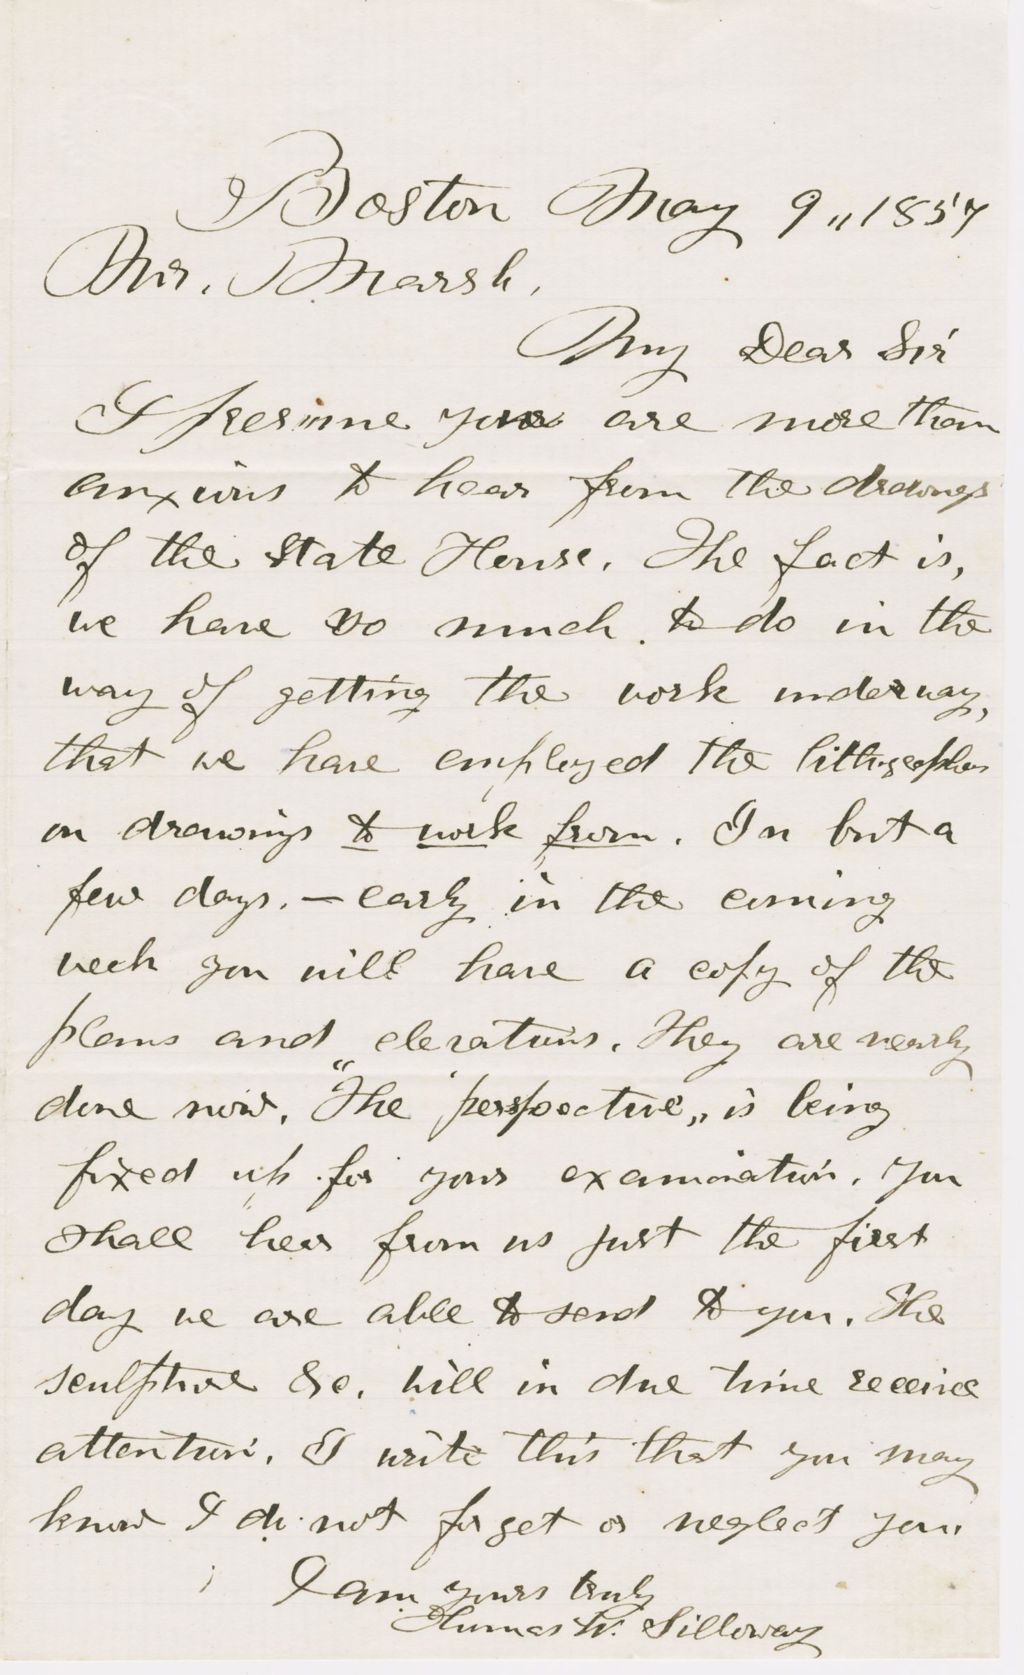 Boston May 9,, 1857
Mr. Marsh,
My Dear Sir
I presume you are more than
anxious to hear from the drawings
of the State House. The fact is,
we have so much to do in the
way of getting the work underway,
that we have employed the lithographer
on drawings to work from. In but a
few days. – early in the coming
week you will have a copy of the
plans and elevations. They are nearly
done now. "The perspective,, is being
fixed up for your examination. You
shall hear from us just the first
day we are able to send to you. The
sculpture &c. will in due time receive
attention. I write this that you may
know I do not forget or neglect you.
I am yours truly
Thomas W. Silloway